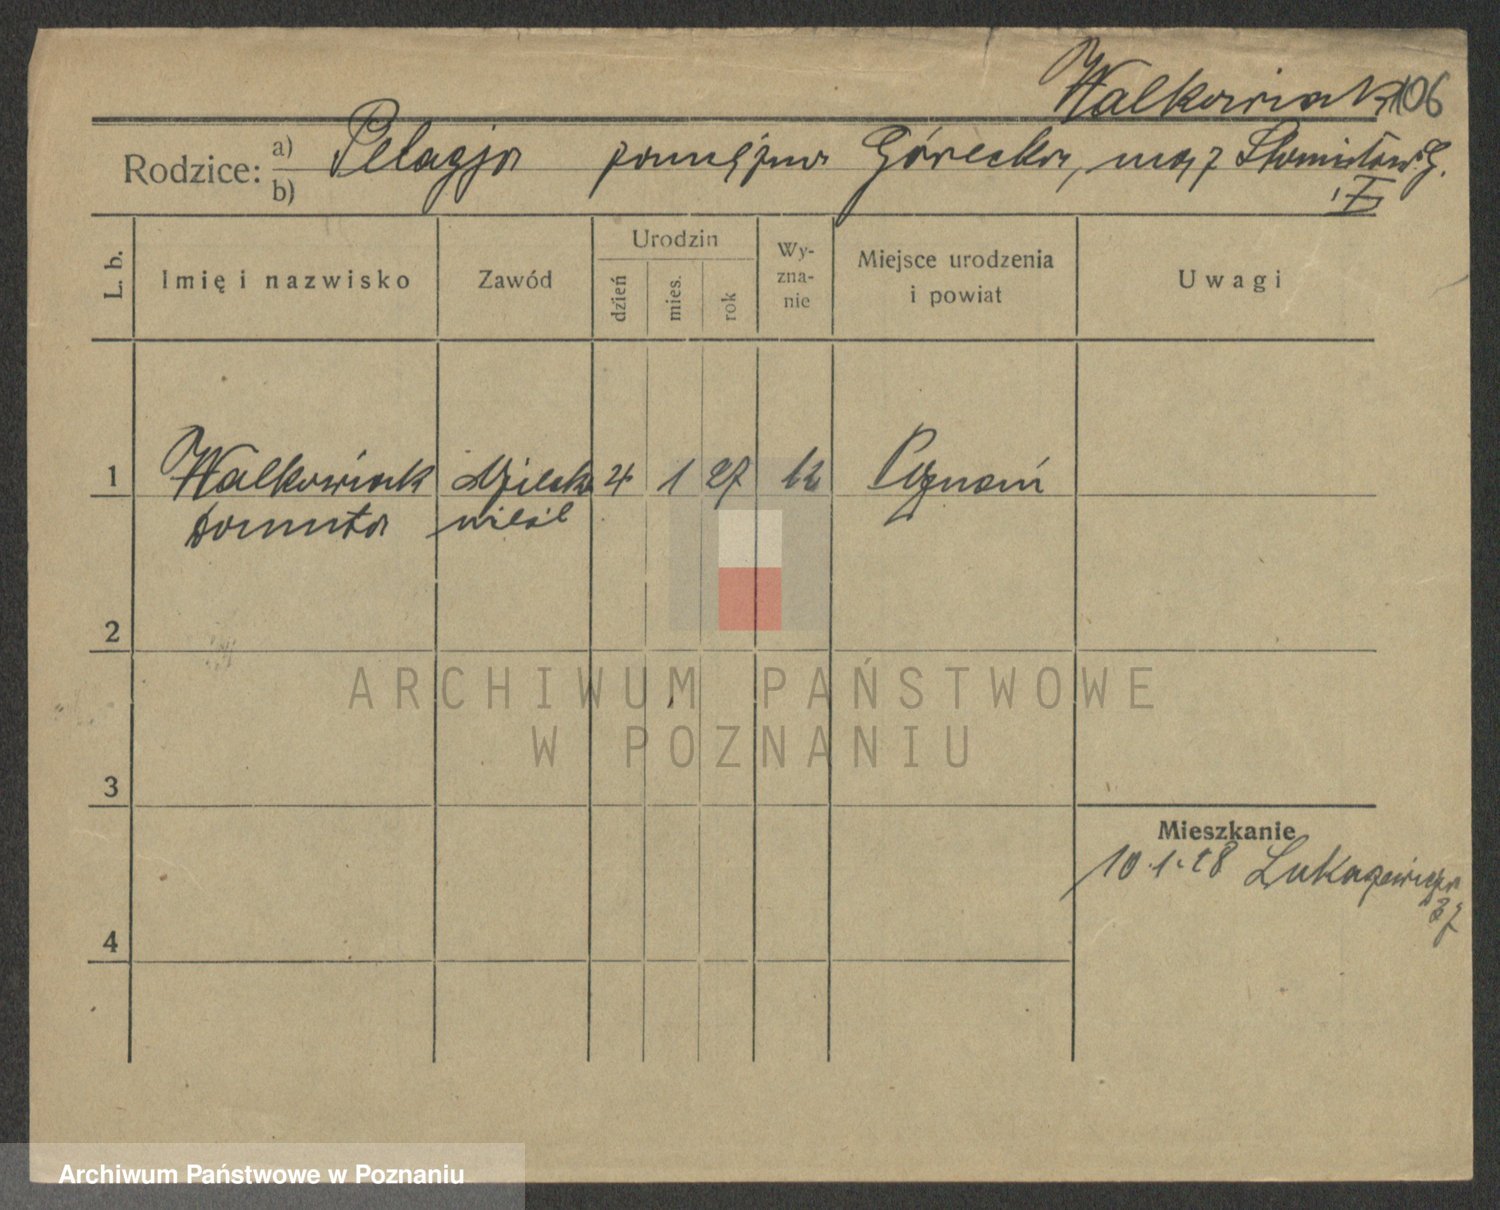 Walkowiak 106
Rodzice: a) b) Pelagja zamężna Górecka, mąż Stanisław G.
L. b. Imię i nazwisko Zawód Urodzin dzień mies. rok Wy-zna-nie Miejsce urodzenia i powiat Uwagi
1 Walkowiak dziecko 4 1 27 Poznań
Danuta nieśl
2
ARCHIWUM PAŃSTWOWE
W POZNANIU
3
Mieszkanie
10.1.28 Łukaszewicza
37
4
Archiwum Państwowe w Poznaniu